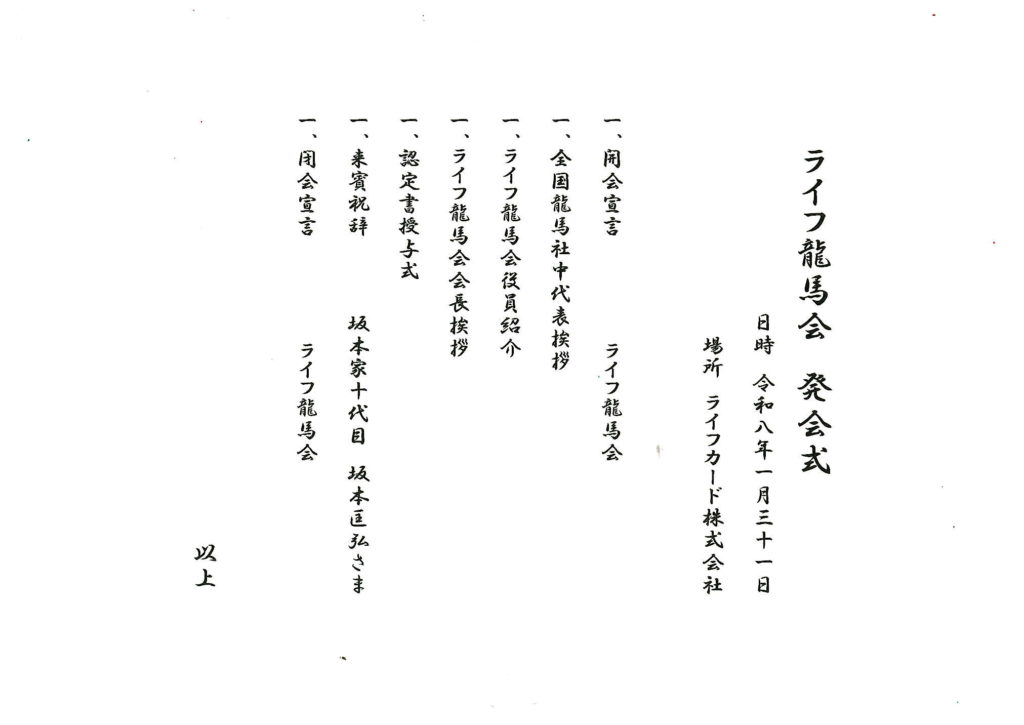 ライフ龍馬会　発会式
日時　令和八年一月三十一日
場所　ライフカード株式会社
一、開会宣言　ライフ龍馬会
一、全国龍馬社中代表挨拶
一、ライフ龍馬会役員紹介
一、ライフ龍馬会会長挨拶
一、認定書授与式
一、来賓祝辞　坂本家十代目　坂本匡弘さま
一、閉会宣言　ライフ龍馬会
以上